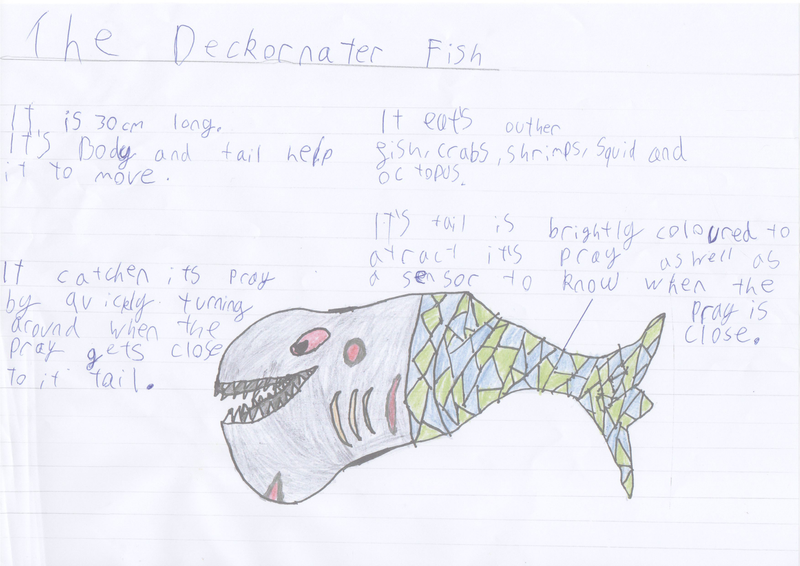 The Deckornater Fish
It is 30cm long.
It's Body and tail help
it to move.
It eats outher
fish, crabs, shrimps, squid and
octopus.
It's tail is brightly coloured to
atract it's pray as well as
a sensor to know when the
pray is
close.
It catchen its pray
by quickly turning
around when the
pray gets close
to it tail.